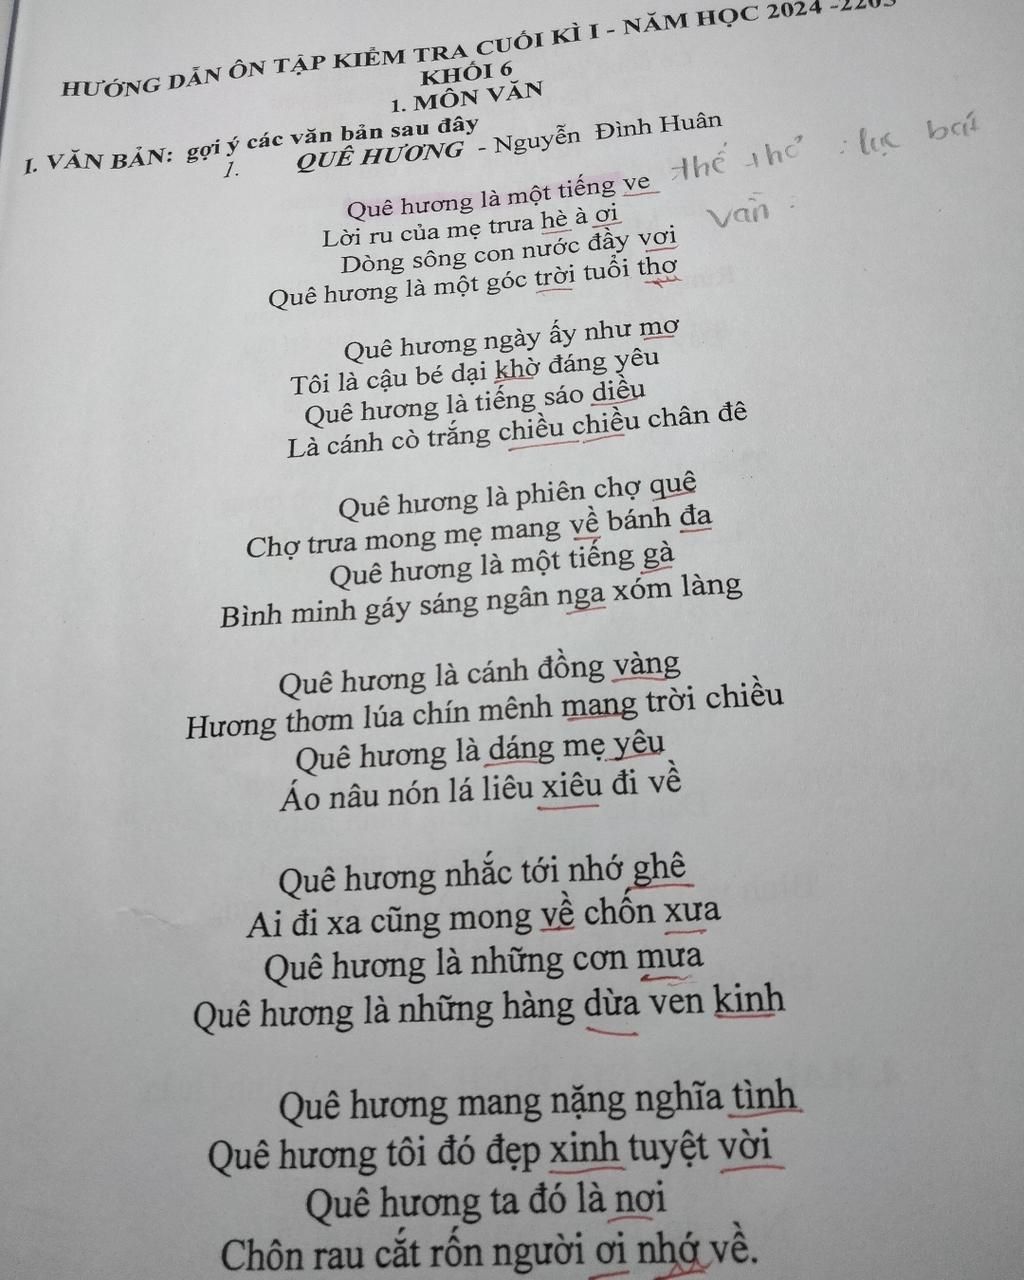 HƯỚNG DẪN ÔN TẬP KIỂM TRA CUỐI KÌ I - NĂM HỌC 2024 -2205
KHỐI 6
1. MÔN VĂN
I. VĂN BẢN: gợi ý các văn bản sau đây
1. QUÊ HƯƠNG - Nguyễn Đình Huân
thể thơ : lục bát
Quê hương là một tiếng ve
vần :
Lời ru của mẹ trưa hè à ơi
Dòng sông con nước đầy vơi
Quê hương là một góc trời tuổi thơ
Quê hương ngày ấy như mơ
Tôi là cậu bé dại khờ đáng yêu
Quê hương là tiếng sáo diều
Là cánh cò trắng chiều chiều chân đê
Quê hương là phiên chợ quê
Chợ trưa mong mẹ mang về bánh đa
Quê hương là một tiếng gà
Bình minh gáy sáng ngân nga xóm làng
Quê hương là cánh đồng vàng
Hương thơm lúa chín mênh mang trời chiều
Quê hương là dáng mẹ yêu
Áo nâu nón lá liêu xiêu đi về
Quê hương nhắc tới nhớ ghê
Ai đi xa cũng mong về chốn xưa
Quê hương là những cơn mưa
Quê hương là những hàng dừa ven kinh
Quê hương mang nặng nghĩa tình
Quê hương tôi đó đẹp xinh tuyệt vời
Quê hương ta đó là nơi
Chôn rau cắt rốn người ơi nhớ về.